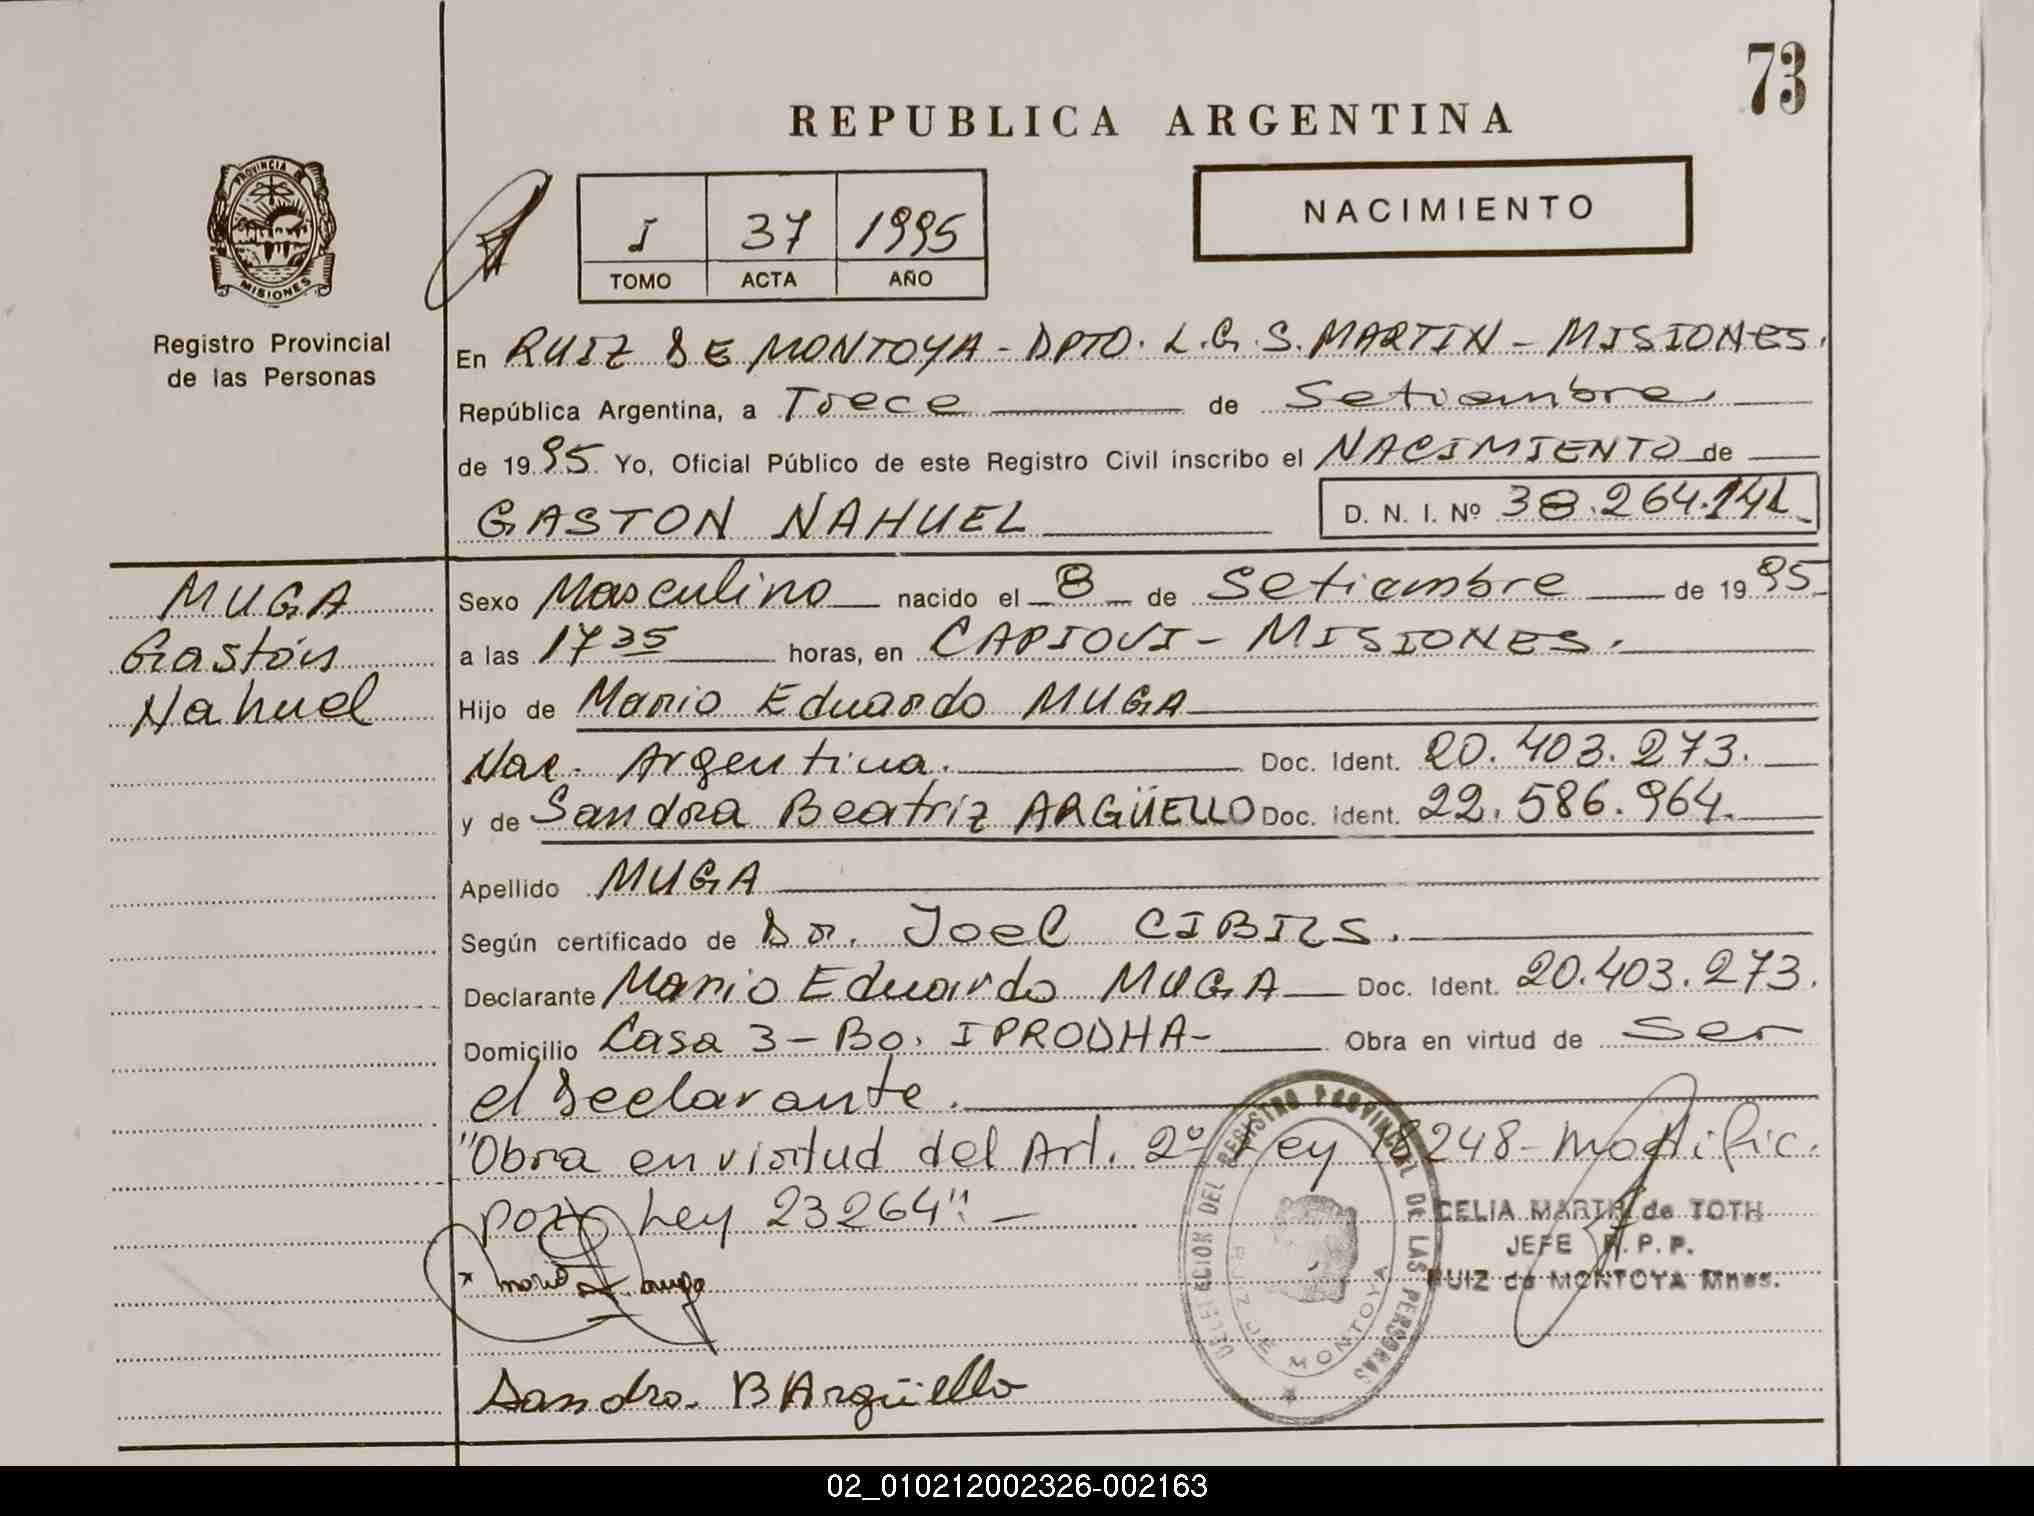 73
REPUBLICA ARGENTINA
PROVINCIA DE
MISIONES
I 37 1995
TOMO ACTA AÑO
NACIMIENTO
Registro Provincial
de las Personas
En RUIZ DE MONTOYA - DPTO. L.G.S. MARTIN - MISIONES.
República Argentina, a Trece de Setiembre
de 1995 Yo, Oficial Público de este Registro Civil inscribo el NACIMIENTO de
GASTON NAHUEL D. N. I. Nº 38.264.141
MUGA
Gastón
Nahuel
Sexo Masculino nacido el 8 de Setiembre de 1995
a las 17 35 horas, en CAPIOVI - MISIONES.
Hijo de Mario Eduardo MUGA
Nac. Argentina. Doc. Ident. 20.403.273.
y de Sandra Beatriz ARGÜELLO Doc. Ident. 22.586.964.
Apellido MUGA
Según certificado de Dr. Joel CIBILS.
Declarante Mario Eduardo MUGA Doc. Ident. 20.403.273.
Domicilio Casa 3 - Bo. IPRODHA - Obra en virtud de ser
el declarante.
"Obra en virtud del Art. 2º Ley 18248 - Modific.
por Ley 23264". -
DELEGACION DEL REGISTRO PROVINCIAL DE LAS PERSONAS
RUIZ DE MONTOYA
CELIA MARTIN de TOTH
JEFE R.P.P.
RUIZ de MONTOYA Mnes.
x Mario E. Muga
Sandra B Argüello
02_010212002326-002163